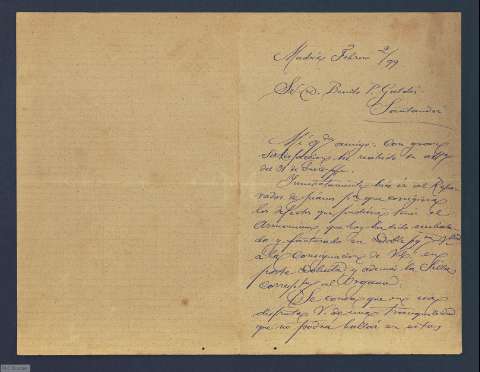 Madrid Febrero 2/99
Sr. D. Benito P. Galdós
Santander
Mi qdo amigo: Con gran
satisfacción he recibido su
del 31 de
Inmediatamente hice ir al Repa-
rador de pianos que corrigiera
los defectos que pudiera tener el
Armonium, que hoy ha sido embala-
do y facturado en Doble
a la consignación de V. en
porte Debido y además la Silla
correspte al Organo.
Se conoce que en esa
disfruta V. de una tranquilidad
que no podía hallar en estos